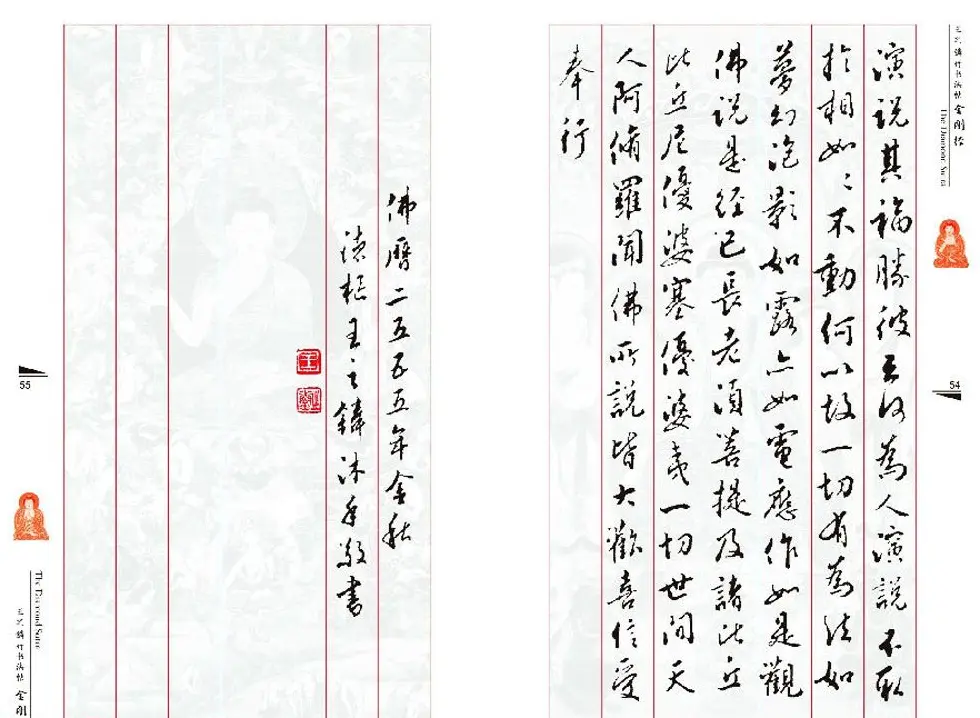 王之鏻行书法帖 金剛经
The Diamond Sutra
54
演说其福勝彼云何為人演説不取
於相如〻不動何以故一切有為法如
夢幻泡影如露亦如電應作如是觀
佛说是经已長老須菩提及諸比丘
比丘尼優婆塞優婆夷一切世间天
人阿脩羅聞佛所説皆大歡喜信受
奉行
佛曆二五五五年金秋
王之鏻沐手敬書
55
The Diamond Sutra
王之鏻行书法帖 金剛